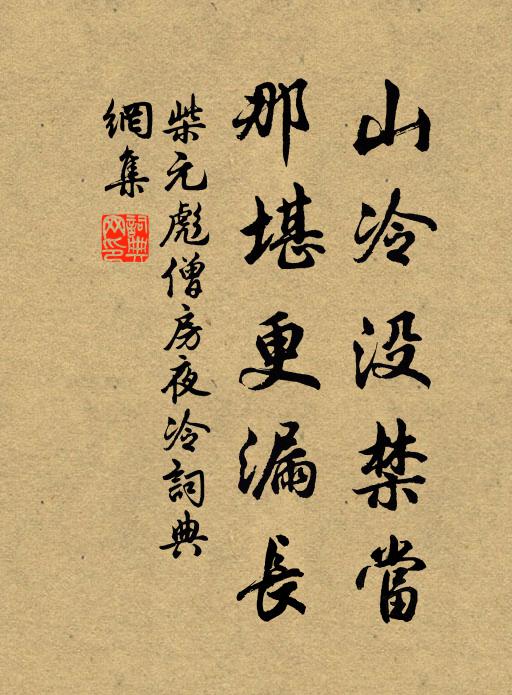 山冷没禁當
那堪更漏長
柴元彪僧房夜冷詞典
網集
詞典網印